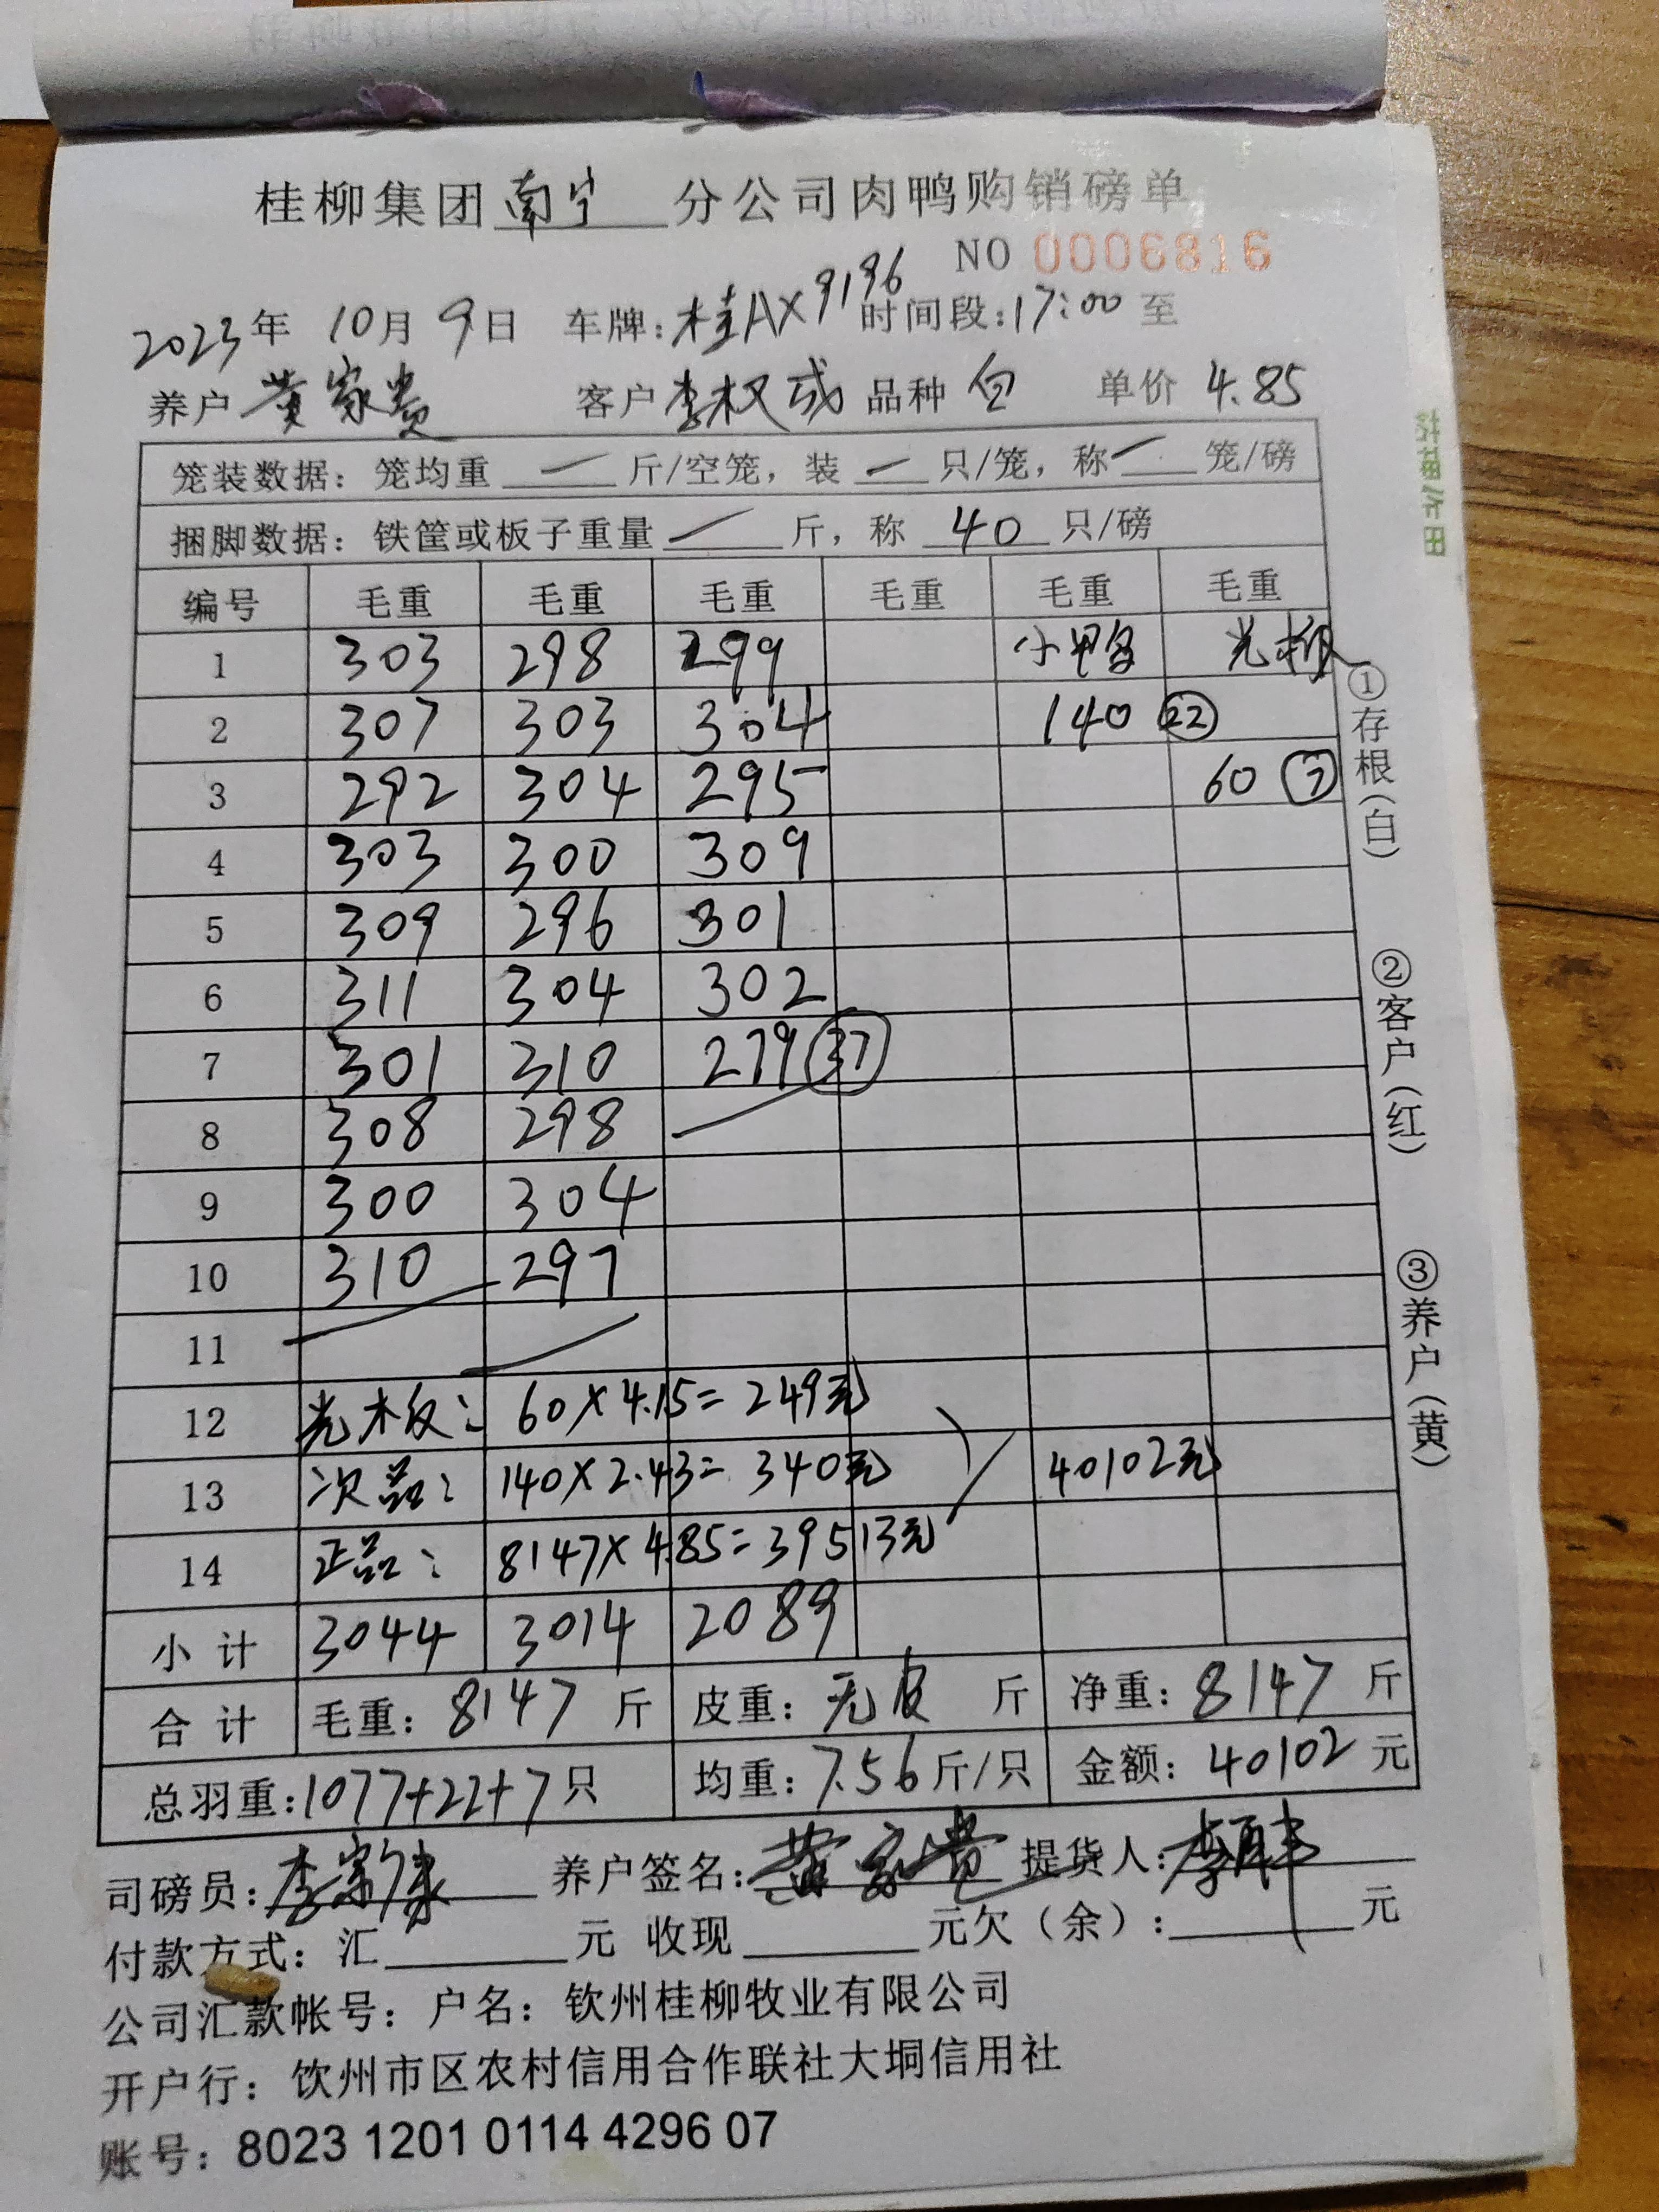 桂柳集团南宁分公司肉鸭购销磅单
NO 0006816
2023年 10月 9日 车牌:桂AX9196 时间段:17:00 至
养户 黄家贵 客户 李权成 品种 白 单价 4.85
笼装数据: 笼均重 — 斤/空笼, 装 — 只/笼, 称 — 笼/磅
捆脚数据: 铁筐或板子重量 — 斤, 称 40 只/磅
编号 毛重 毛重 毛重 毛重 毛重 毛重
1 303 298 299 小鸭 光板
2 307 303 304 140 22
3 292 304 295 60 7
4 303 300 309
5 309 296 301
6 311 304 302
7 301 310 279 37
8 308 298
9 300 304
10 310 297
11
12 光木板: 60×4.15=249元
13 次品: 140×2.43=340元 40102元
14 正品: 8147×4.85=39513元
小计 3044 3014 2089
合计 毛重: 8147 斤 皮重: 无皮 斤 净重: 8147 斤
总羽重:1077+22+7只 均重: 7.56斤/只 金额: 40102 元
司磅员: 养户签名: 黄家贵 提货人:
付款方式: 汇 元 收现 元欠(余): 元
公司汇款帐号: 户名: 钦州桂柳牧业有限公司
开户行: 饮州市区农村信用合作联社大垌信用社
账号: 8023 1201 0114 4296 07
①存根(白)
②客户(红)
③养户(黄)